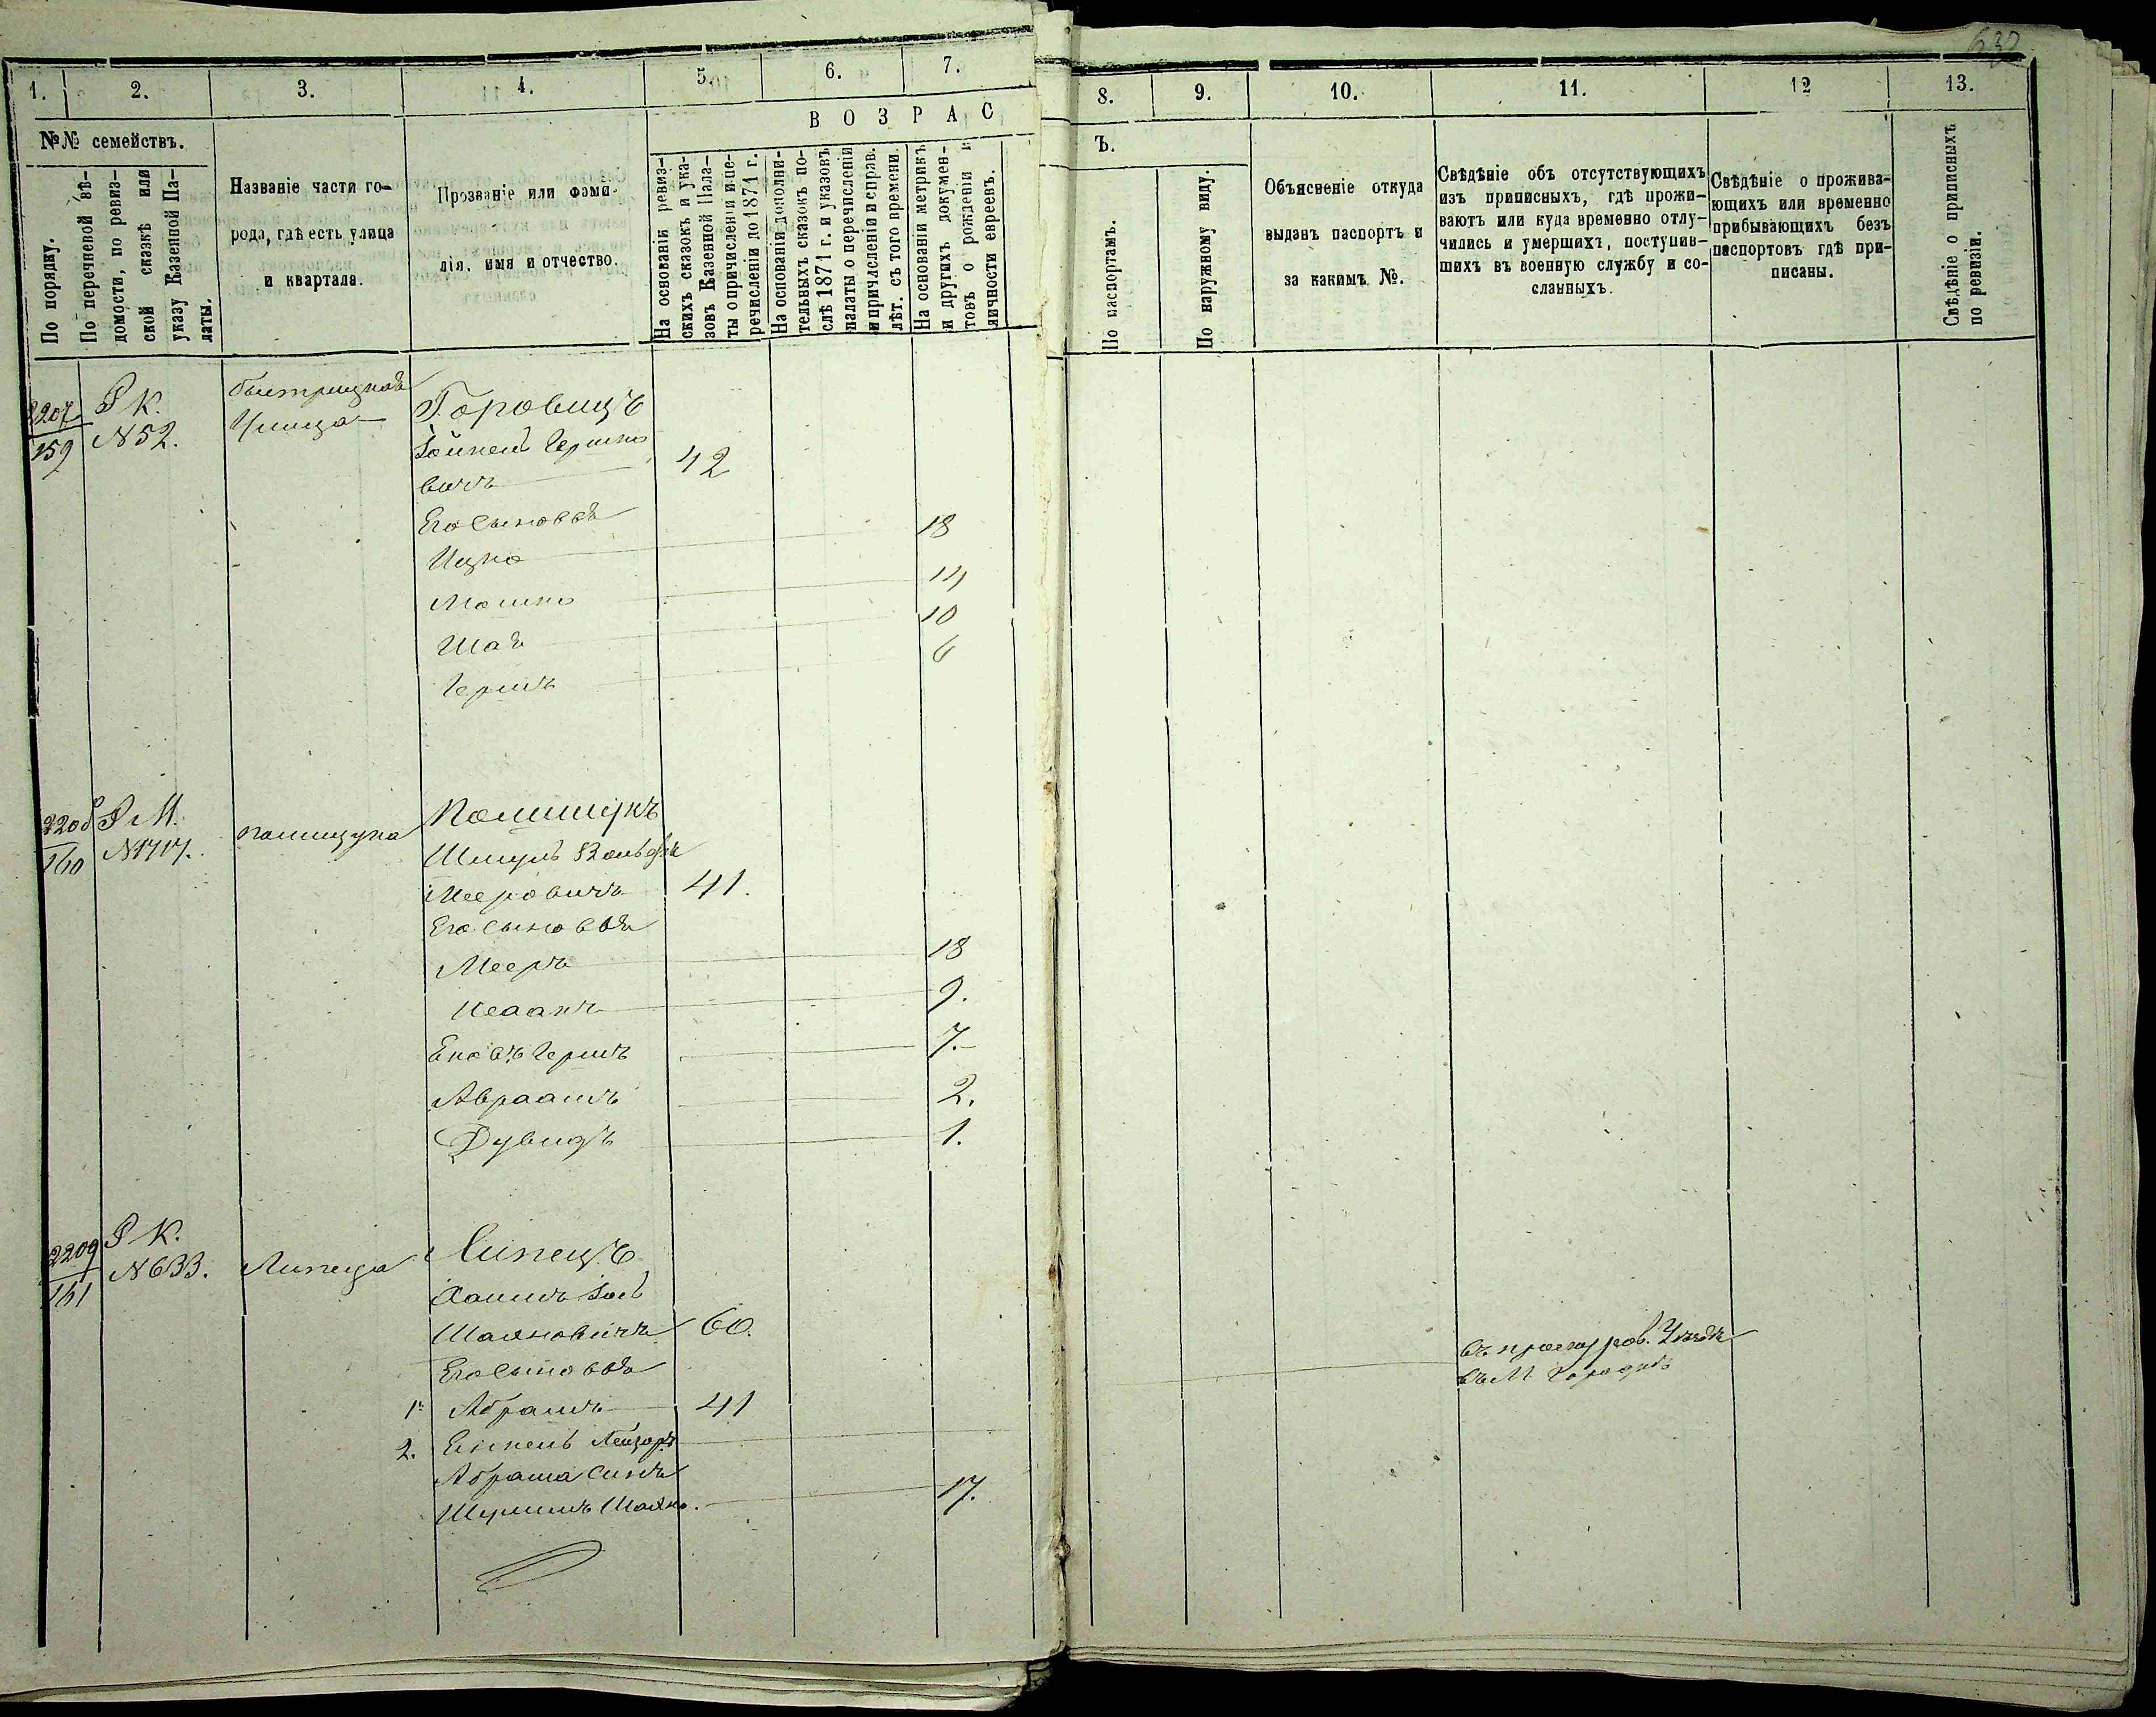 632
1.
2.
3.
4.
5.
6.
7.
8.
9.
10.
11.
12
13.
№№ семействъ.
По порядку.
По перечневой вѣ-
домости, по ревиз-
ской сказкѣ или
указу Казенной Па-
латы.
Названіе части го-
рода, гдѣ есть улица
и квартала.
Прозваніе или фами-
лія, имя и отчество.
ВОЗРАС
На основаніи ревиз-
скихъ сказокъ и ука-
зовъ Казенной Пала-
ты о причисленіи и пе-
речисленіи до 1871 г.
На основаніи дополни-
тельныхъ сказокъ по-
слѣ 1871 г. и указовъ
палаты о перечисленіи
и причисленіи и справ.
лѣт. съ того времени.
На основаніи метрикъ
и другихъ докумен-
товъ о рожденіи и
личности евреевъ.
Ъ.
По паспортамъ.
По наружному виду.
Объясненіе откуда
выданъ паспортъ и
за какимъ №.
Свѣдѣніе объ отсутствующихъ
изъ приписныхъ, гдѣ прожи-
ваютъ или куда временно отлу-
чились и умершихъ, поступив-
шихъ въ военную службу и со-
сланныхъ.
Свѣдѣніе о прожива-
ющихъ или временно
прибывающихъ безъ
паспортовъ гдѣ при-
писаны.
Свѣдѣніе о приписныхъ
по ревизіи.
2207
159
Р К.
N 52.
Горовицъ
Іойнель Гершко
вичъ
42
Его сыновья
Ицко
18
Мошко
14
Шая
10
Гершъ
6
2208
160
Р М.
N 1717.
Полищукъ
Шмуль Вольфъ
Мееровичъ
41.
Его сыновья
Мееръ
18
Исаакъ
9.
Гершъ
7.
Авраамъ
2.
Дувидъ
1.
2209
161
Р К.
N 633.
Липеца
Липецъ
Хаимъ Іось
Шаяновичъ
60.
Его сыновья
1. Абрамъ
41
2. Лейзоръ
Абрама сынъ
17.
въ М